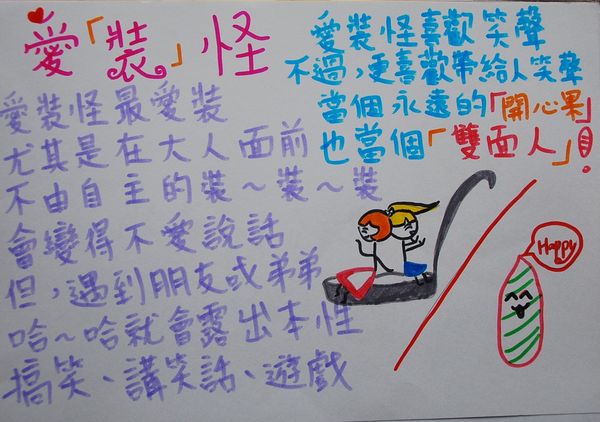 愛「裝」怪
愛裝怪最愛裝
尤其是在大人面前
不由自主的裝～裝～裝
會變得不愛說話
但，遇到朋友或弟弟
哈～哈就會露出本性
搞笑、講笑話、遊戲
愛裝怪喜歡笑聲
不過，更喜歡帶給人笑聲
當個永遠的「開心果」
也當個「雙面人」!
Happy